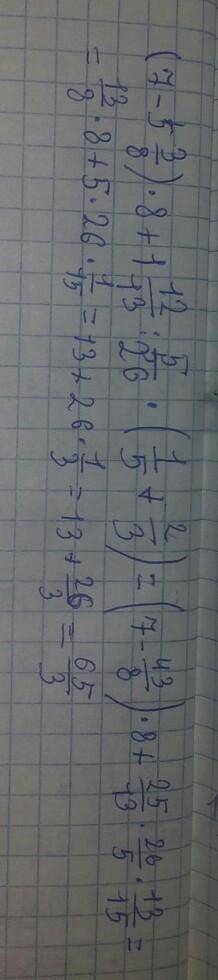 (7 - 5 3/8) · 8 + 1 12/13 : 5/26 · (1/5 + 2/3) = (7 - 43/8) · 8 + 25/13 · 26/5 · 13/15 =
= 13/8 · 8 + 5 · 26 · 1/15 = 13 + 26 · 1/3 = 13 + 26/3 = 65/3